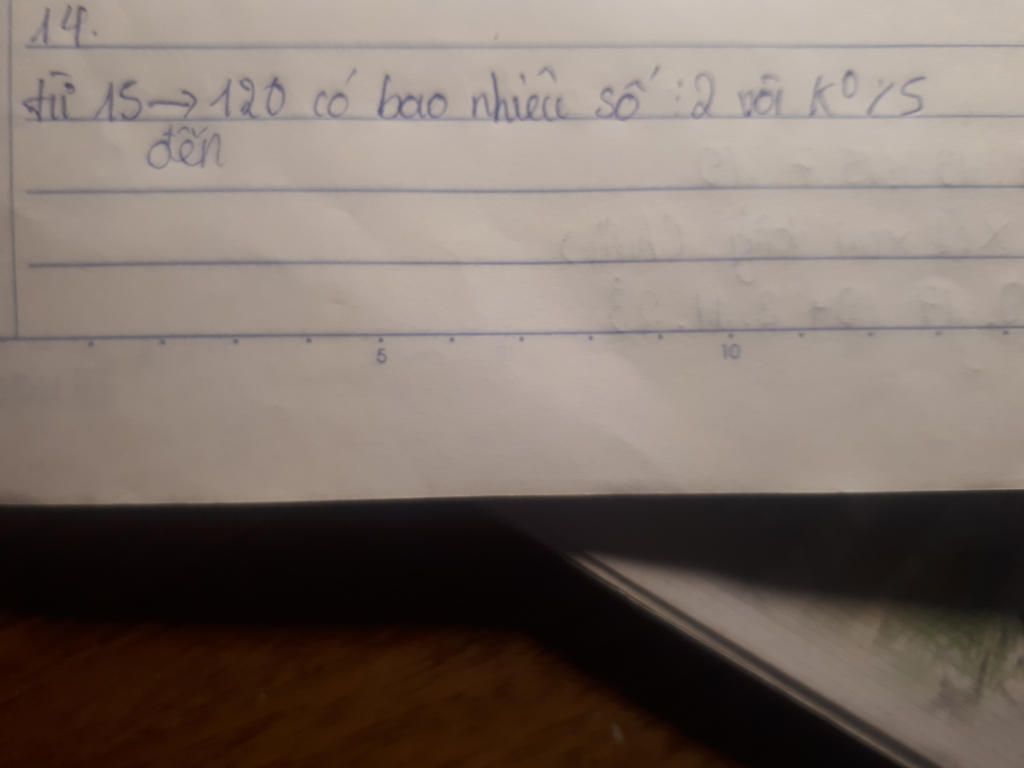 14.
từ 15 → 120 có bao nhiêu số :2 với K⁰ : 5
đến
5 10